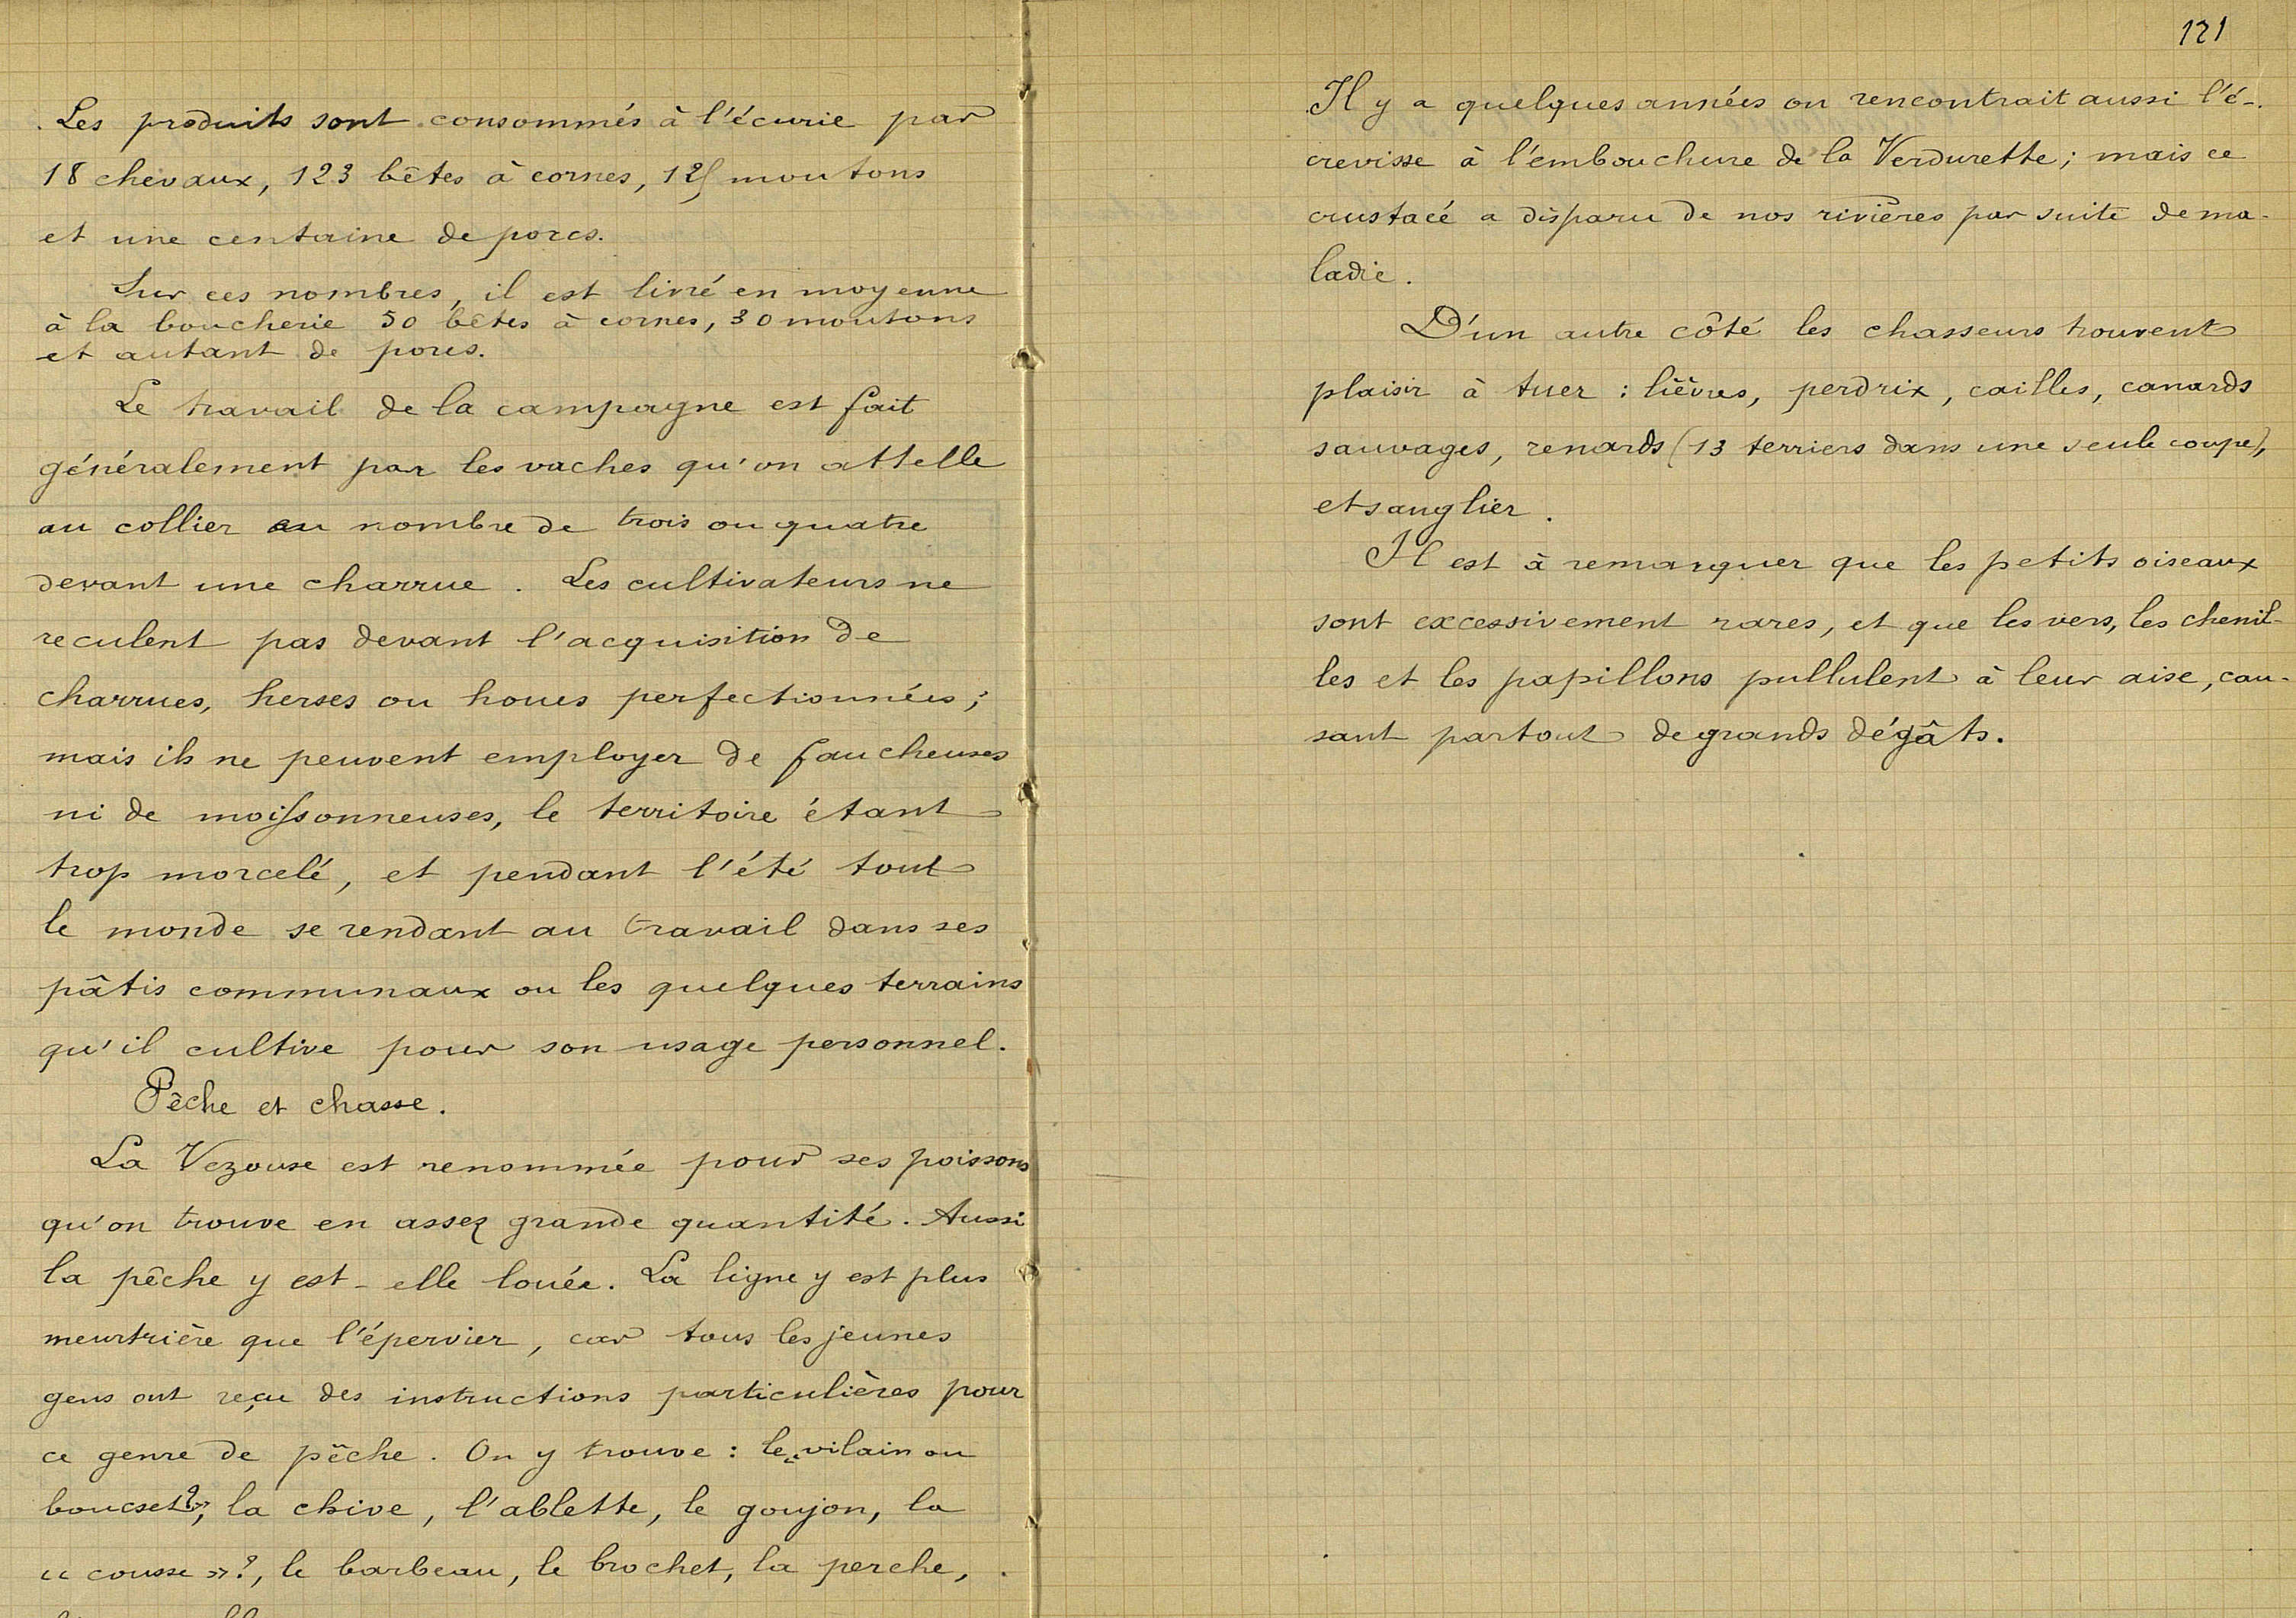 Les produits sont consommés à l'écurie par
18 chevaux, 123 bêtes à cornes, 125 moutons
et une centaine de porcs.
Sur ces nombres, il est livré en moyenne
à la boucherie 50 bêtes à cornes, 30 moutons
et autant de porcs.
Le travail de la campagne est fait
généralement par les vaches qu'on attelle
au collier au nombre de trois ou quatre
devant une charrue. Les cultivateurs ne
reculent pas devant l'acquisition de
charrues, herses ou houes perfectionnées;
mais ils ne peuvent employer de faucheuses
ni de moissonneuses, le territoire étant
trop morcelé, et pendant l'été tout
le monde se rendant au travail dans ses
pâtis communaux ou les quelques terrains
qu'il cultive pour son usage personnel.
Pêche et chasse.
La Vezouse est renommée pour ses poissons
qu'on trouve en assez grande quantité. Aussi
la pêche y est-elle louée. La ligne y est plus
meurtrière que l'épervier, car tous les jeunes
gens ont reçu des instructions particulières pour
ce genre de pêche. On y trouve : le "vilain ou
boucset?", la chive, l'ablette, le goujon, la
"cousse"?, le barbeau, le brochet, la perche,
121
Il y a quelques années on rencontrait aussi l'é-
crevisse à l'embouchure de la Verdurette; mais ce
crustacé a disparu de nos rivières par suite de ma-
ladie.
D'un autre côté les chasseurs trouvent
plaisir à tuer : lièvres, perdrix, cailles, canards
sauvages, renards (13 terriers dans une seule coupe),
et sanglier.
Il est à remarquer que les petits oiseaux
sont excessivement rares, et que les vers, les chenil-
les et les papillons pullulent à leur aise, cau-
sant partout de grands dégâts.